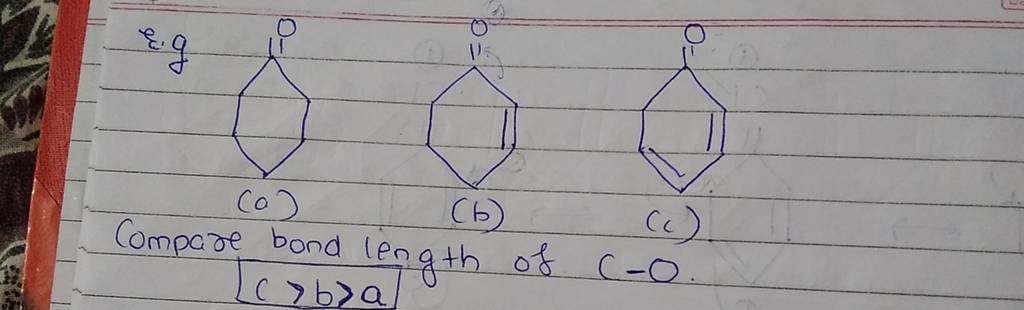 E.g
O O O
(a) (b) (c)
Compare bond length of C-O.
c > b > a